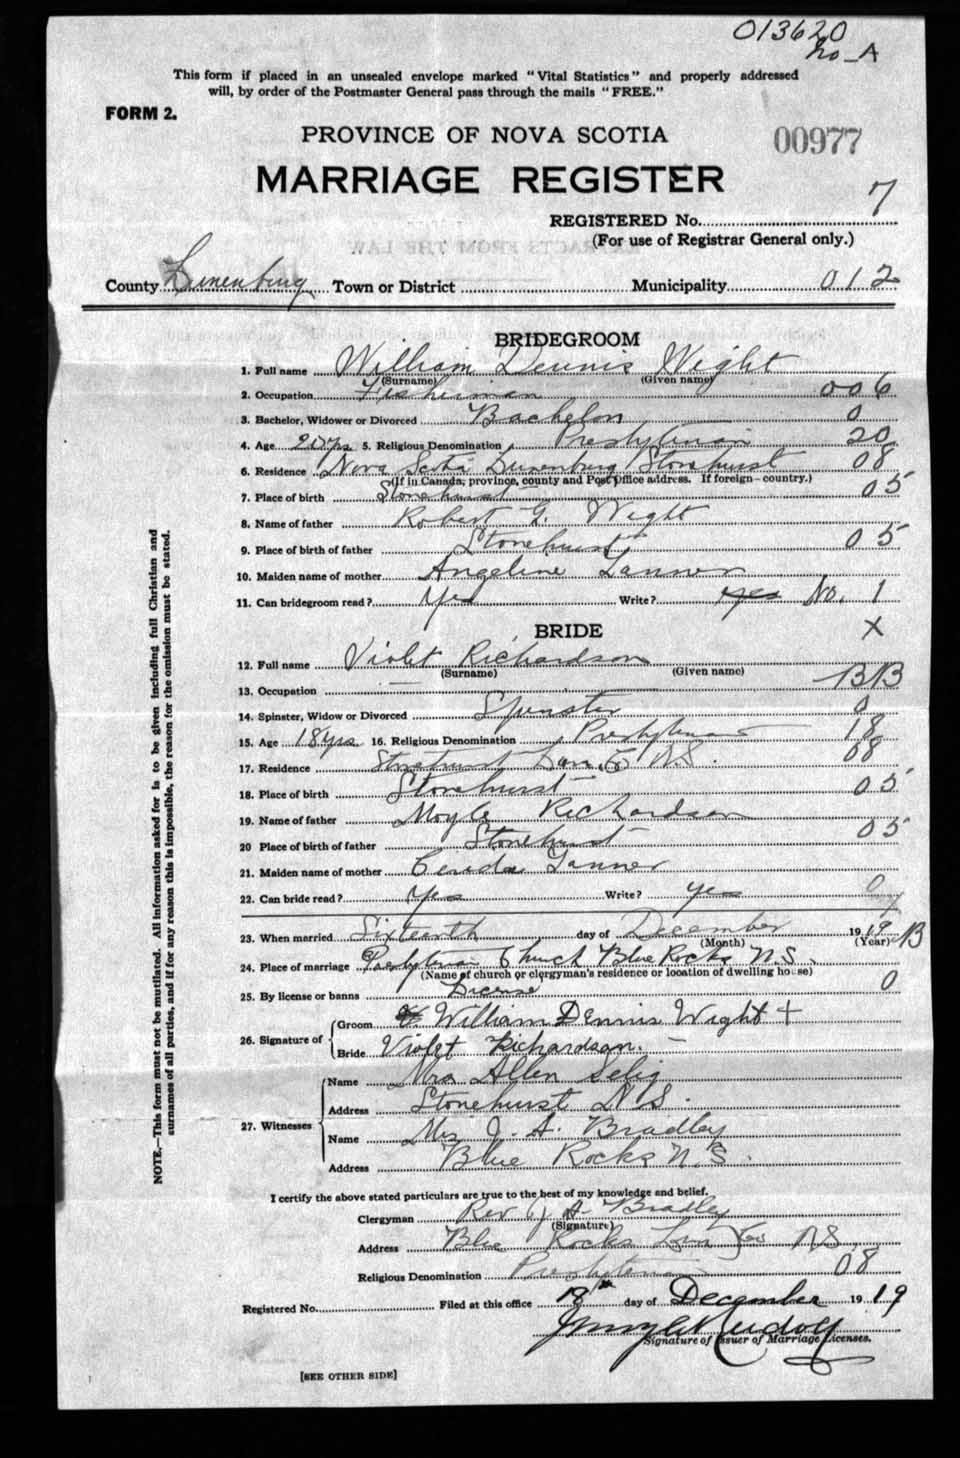 013620
No-A
This form if placed in an unsealed envelope marked "Vital Statistics" and properly addressed
will, by order of the Postmaster General pass through the mails "FREE."
FORM 2.
PROVINCE OF NOVA SCOTIA
00977
MARRIAGE REGISTER
REGISTERED No. 7
(For use of Registrar General only.)
County Lunenburg Town or District Municipality 012
BRIDEGROOM
1. Full name William Dennis Wight
(Surname) (Given name)
2. Occupation Fisherman 006
3. Bachelor, Widower or Divorced Bachelor 0
4. Age 20 yrs 5. Religious Denomination Presbyterian 20
6. Residence Nova Scotia Lunenburg Stonehurst 08
(If in Canada, province, county and Post Office address. If foreign—country.)
7. Place of birth Stonehurst 05
8. Name of father Robert G. Wight
9. Place of birth of father Stonehurst 05
10. Maiden name of mother Angeline Tanner
11. Can bridegroom read? Yes Write? yes No. 1
BRIDE X
12. Full name Violet Richardson
(Surname) (Given name)
13. Occupation — BB
14. Spinster, Widow or Divorced Spinster 0
15. Age 18 yrs. 16. Religious Denomination Presbyterian 18
17. Residence Stonehurst Lun. Co N.S. 08
18. Place of birth Stonehurst 05
19. Name of father Moyle Richardson
20 Place of birth of father Stonehurst 05
21. Maiden name of mother Tanner
22. Can bride read? Yes Write? yes 0
23. When married Sixteenth day of December 1919
(Month) (Year)
24. Place of marriage Presbyterian Church Blue Rocks N.S.
(Name of church or clergyman's residence or location of dwelling house)
25. By license or banns License 0
26. Signature of
Groom William Dennis Wight +
Bride Violet Richardson.
27. Witnesses
Name Mrs Allen Selig
Address Stonehurst N.S.
Name Mrs J. A. Bradley
Address Blue Rocks N.S.
I certify the above stated particulars are true to the best of my knowledge and belief.
Clergyman Rev J A Bradley
(Signature)
Address Blue Rocks Lun Co N.S.
Religious Denomination Presbyterian 08
Registered No. Filed at this office 18th day of December 1919
Signature of Issuer of Marriage Licenses.
[SEE OTHER SIDE]
NOTE.—This form must not be mutilated. All information asked for is to be given including full Christian and
surnames of all parties, and if for any reason this is impossible, the reason for the omission must be stated.